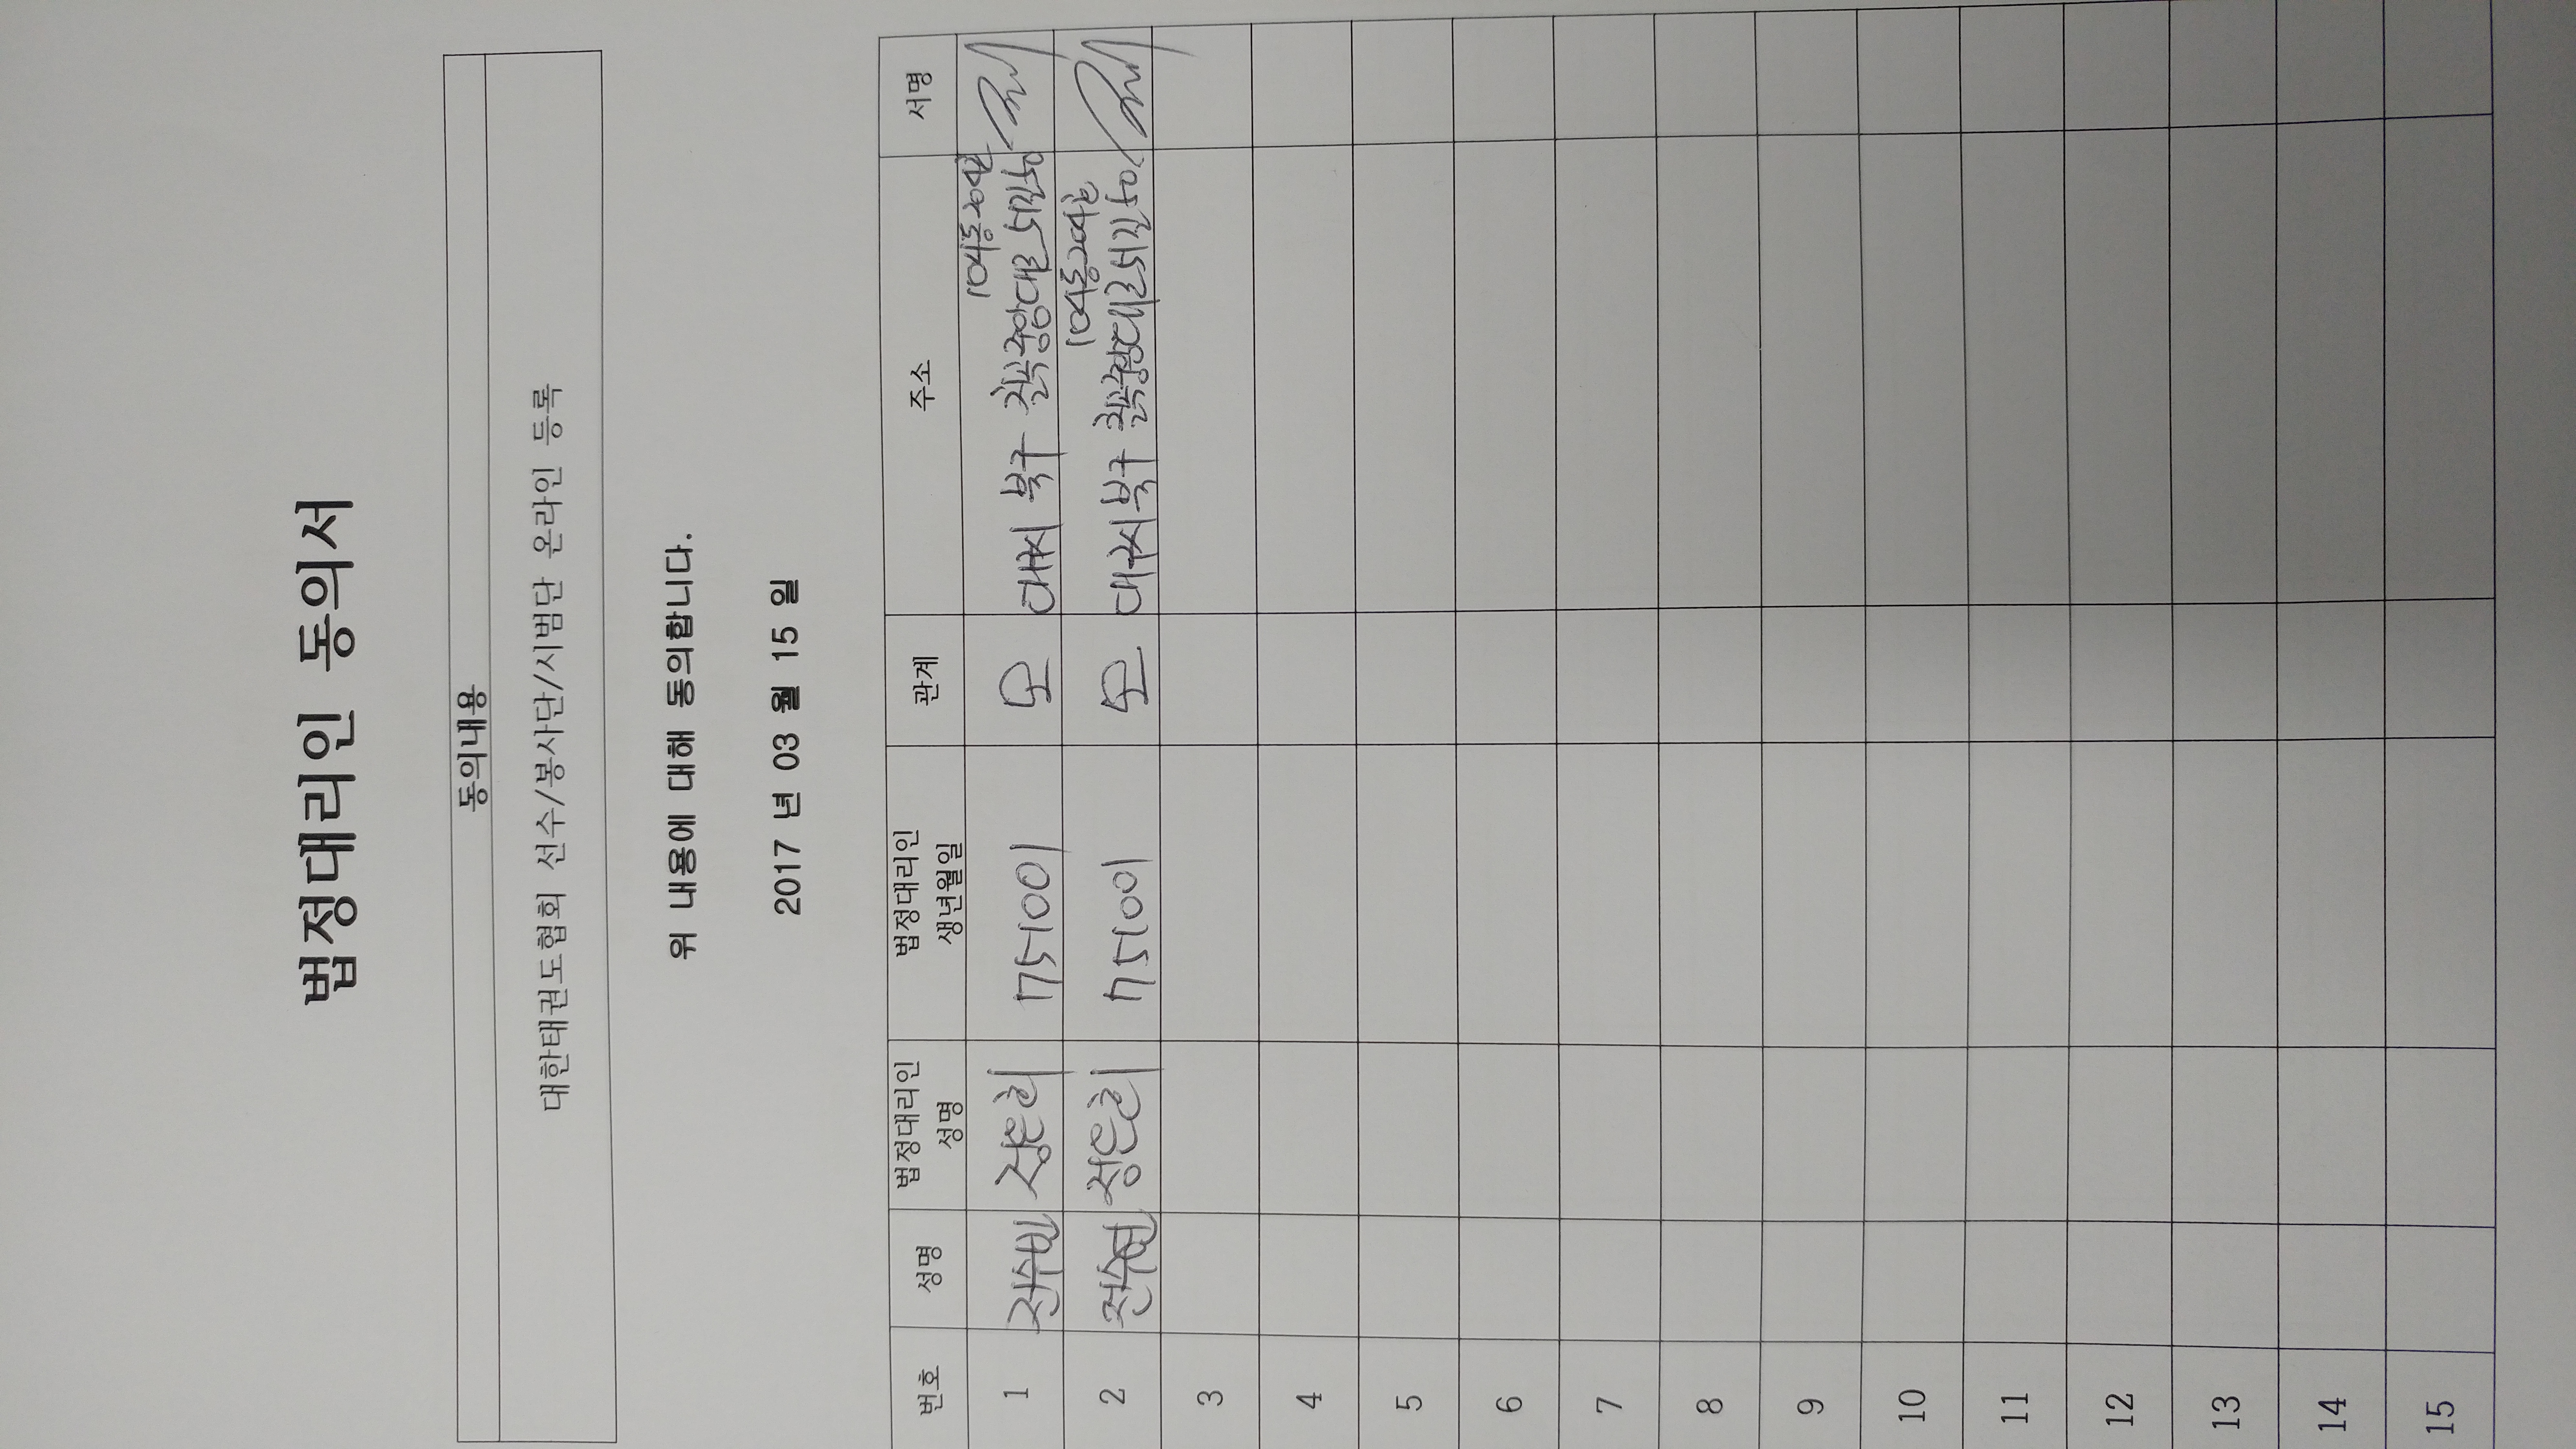 법정대리인 동의서
동의내용
대한태권도협회 선수/봉사단/시범단 온라인 등록
위 내용에 대해 동의합니다.
2017 년 03 월 15 일
번호 성명 법정대리인 성명 법정대리인 생년월일 관계 주소 서명
104동204호
1 전수빈 정은희 751001 모 대구시 북구 칠곡중앙대로52길50
104동204호
2 전수현 정은희 751001 모 대구시 북구 칠곡중앙대로52길50
3
4
5
6
7
8
9
10
11
12
13
14
15